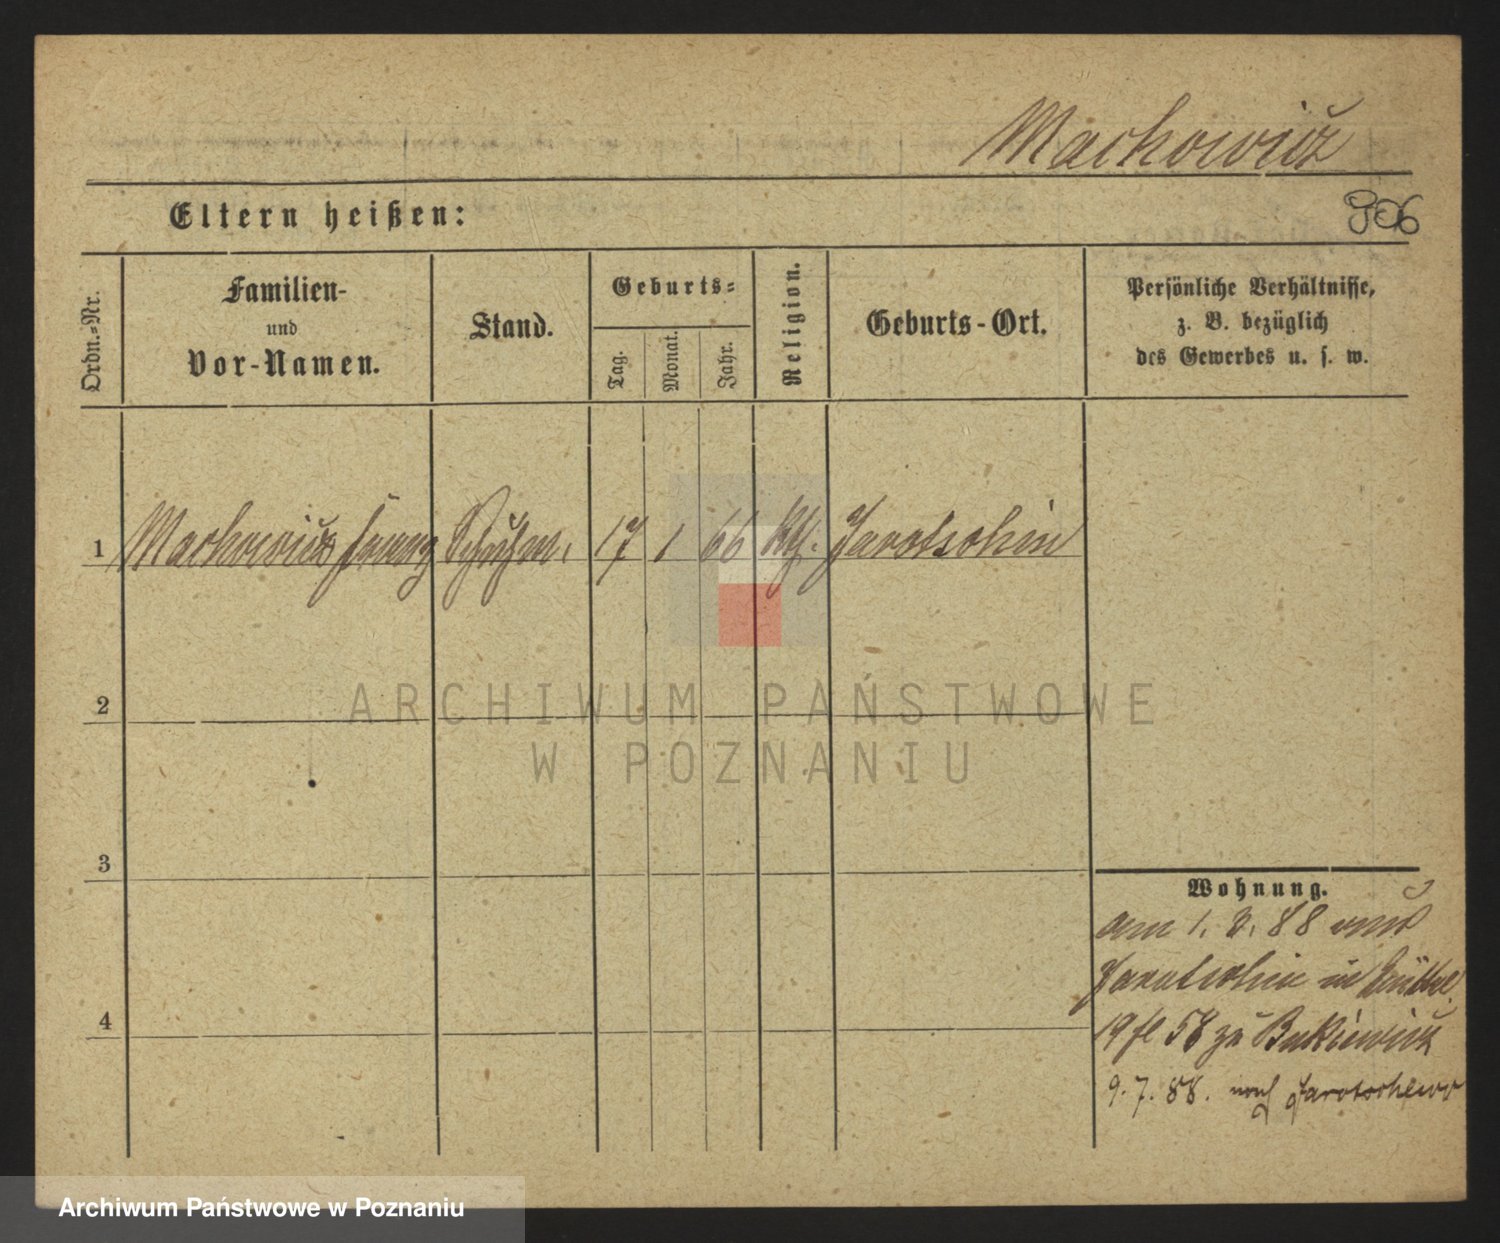 Machowicz
Eltern heißen:
906
Ordn.=Nr.
Familien-
und
Vor-Namen.
Stand.
Geburts=
Tag.
Monat.
Jahr.
Religion.
Geburts-Ort.
Persönliche Verhältnisse,
z. B. bezüglich
des Gewerbes u. s. w.
1 Machowicz Franz Schuhm. 17 1 66 Kth. Jarotschin
2
ARCHIWUM PAŃSTWOWE
W POZNANIU
3
Wohnung.
am 1. 3. 88 aus
Jarotschin in
4
19 fl 58 zu Bukiewicz
9. 7. 88. nach Jarotschewo
Archiwum Państwowe w Poznaniu